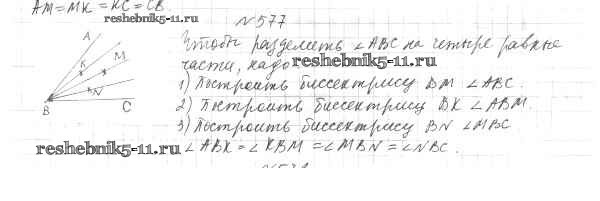 AM = MK = KC = CB.
reshebnik5-11.ru
№577
A
M
K
N
B
C
Чтобы разделить ∠ABC на четыре равные
части, надо reshebnik5-11.ru
1) Построить биссектрису BM ∠ABC.
2) Построить биссектрису BK ∠ABM.
3) Построить биссектрису BN ∠MBC
reshebnik5-11.ru ∠ABK = ∠KBM = ∠MBN = ∠NBC.